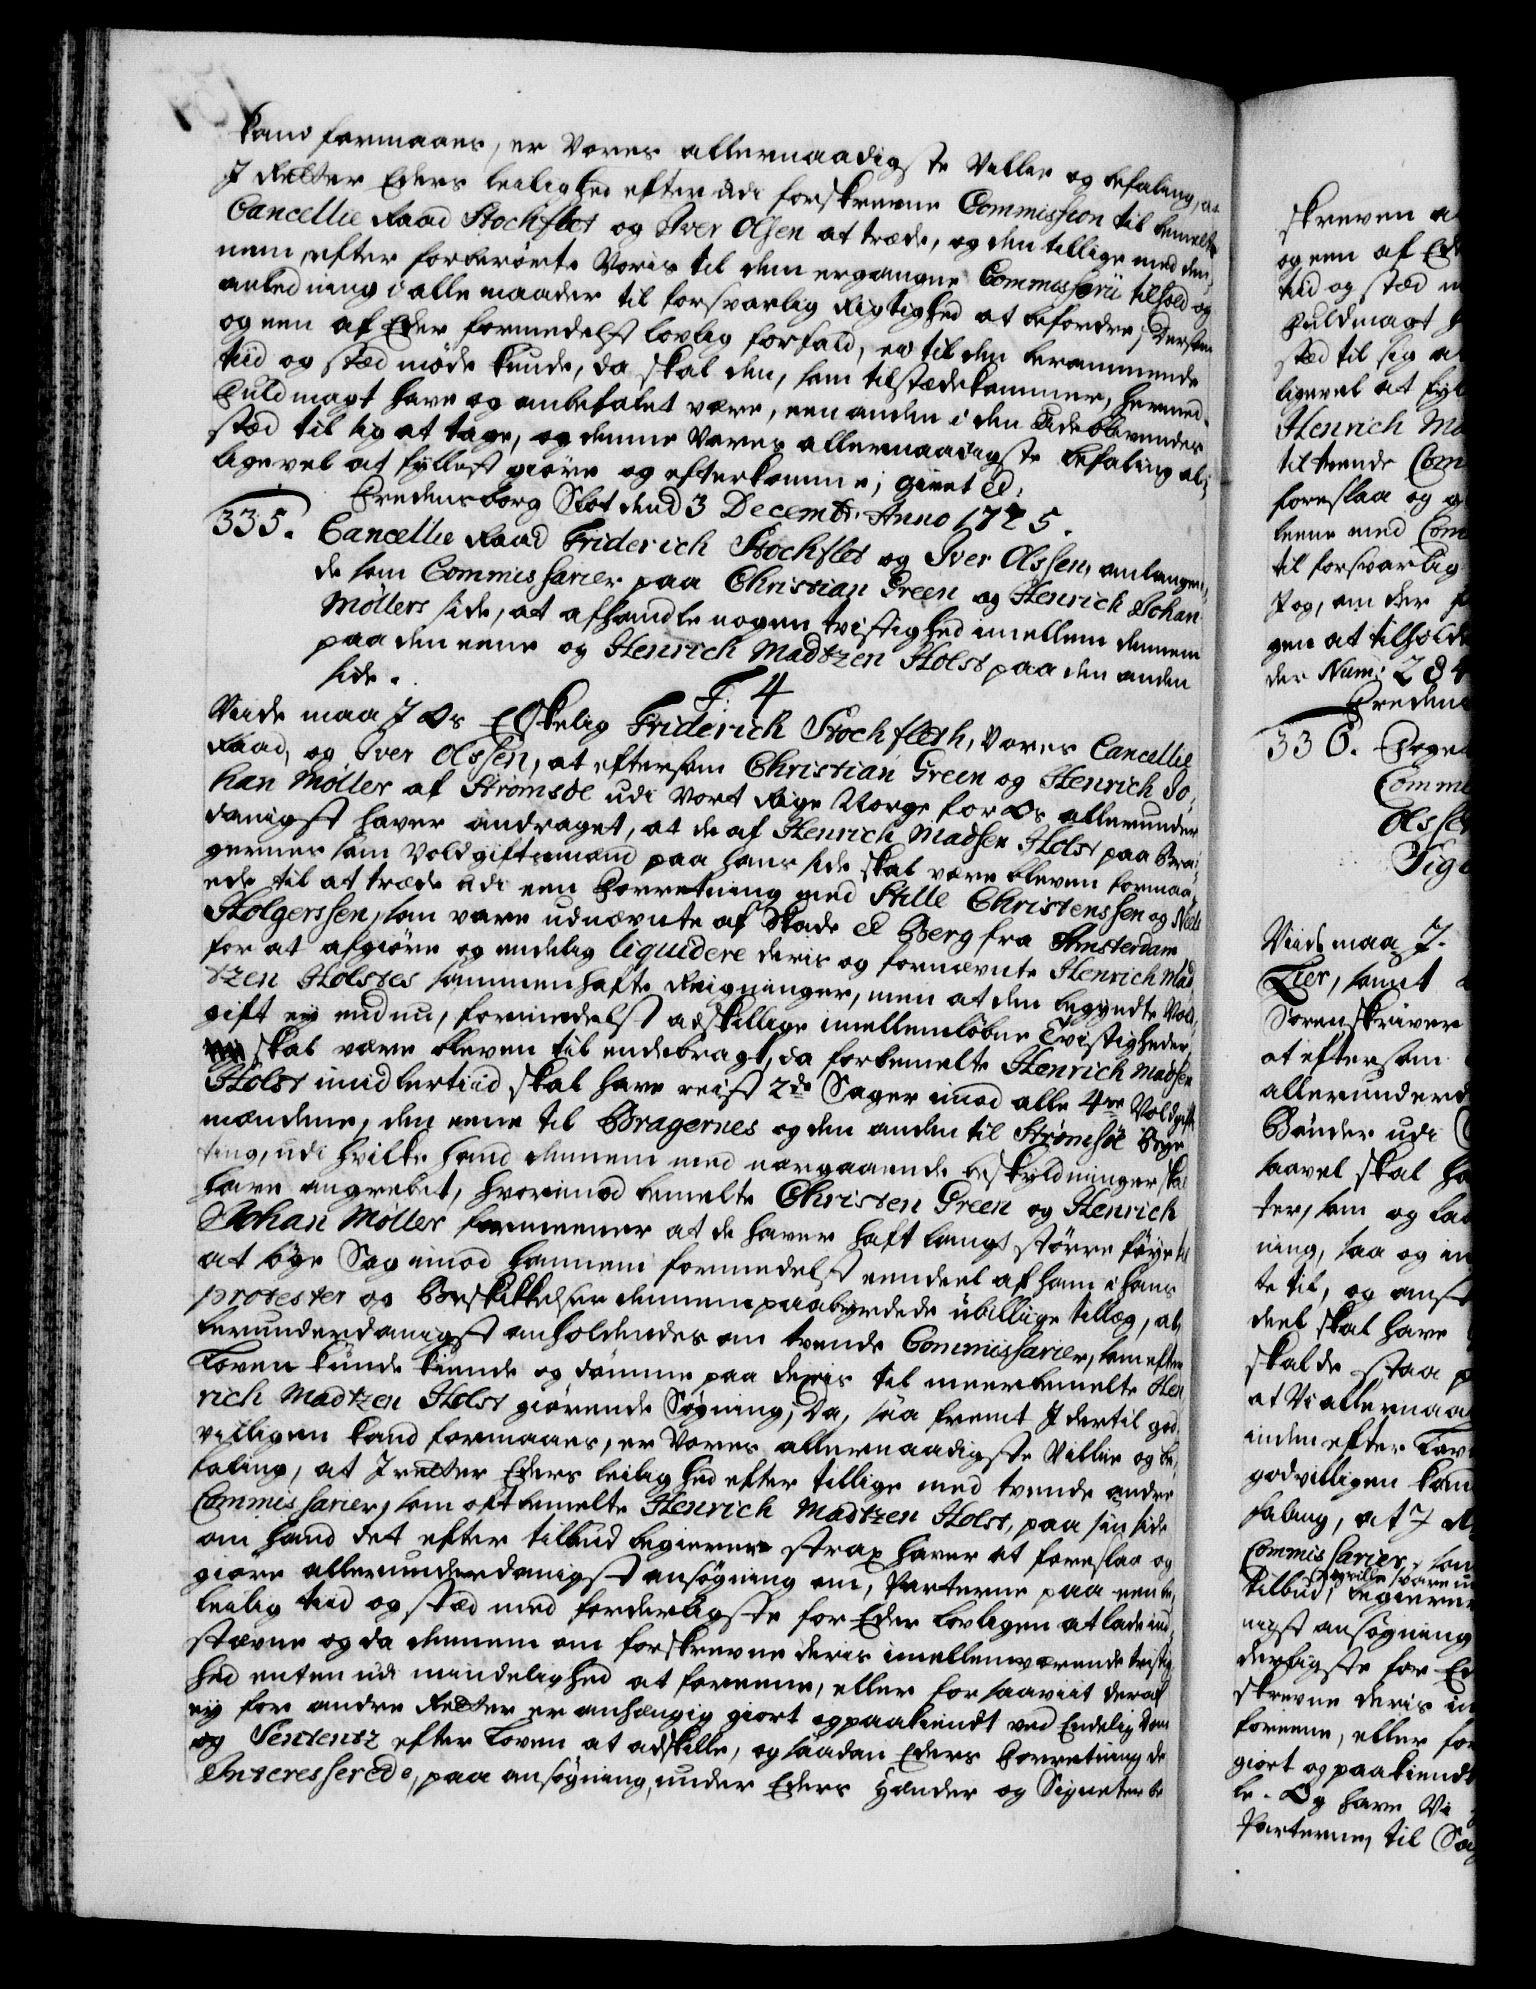 kand formaaes, er Vores allernaadigste Villie og befaling, at
I retter Eders leilighed efter udi forskrevne Commission til bemelte
Cancellie Raad Stochflet og Iver Olsen at træde, og den tillige med den-
nem, efter forberørte Voris til dem ergangne Commissorii tilhold og
anledning i alle maader til forsvarlig Rigtighed at befordre; Dersom
og een af Eder formedelst lovlig forfald, ei til den berammende
tiid og stæd møde kunde, da skal den, som tilstædekommer, hermed
Fuldmagt have og anbefalet være, een anden i den Udeblivendes
stæd til sig at tage, og denne Vores allernaadigste befaling al-
ligevel at fyllest giøre og efterkomme; givet etc.
Fredensborg Slot dend 3 Decembr: Anno 1725.
335. Cancellie Raad Friderich Stochflet og Iver Olssen, anlangen-
de som Commissarier paa Christian Green og Henrich Johan
Møllers side, at afhandle nogen tvistighed imellem dennem
paa den eene og Henrich Madtzen Holst paa den anden
side.
F: 4
Viide maa I Os Elskelig Friderich Stochfleth, Vores Cancellie
Raad, og Iver Olssen, at eftersom Christian Green og Henrich Jo-
han Møller af Strømsøe udi Vort Rige Norge for Os allerunder
danigst haver andraget, at de af Henrich Madsen Holst paa Bra-
gernes som Voldgiftsmænd paa hans side skal være bleven formaa-
ede til at træde udi een Forretning med Stille Christenssen og Niels
Holgerssen, som vare udnævnte af Skade et Berg fra Amsterdam
for at afgiøre og endelig liquidere deris og fornævnte Henrich Mad-
tzen Holstes sammenhafte Reigninger, men at den begyndte Vold-
gift ey endnu, formedelst adskillige imellemløbne Tvistigheder
skal være bleven til endebragt, da forbemelte Henrich Madsen
Holst imidlertiid skal have reist 2de Sager imod alle 4re Voldgifts
mændene, den eene til Bragernes og den anden til Strømsøe Bye-
ting, udi hvilke hand dennem med nærgaaende beskyldninger skal
have angrebet, hvorimod bemelte Christen Green og Henrich
Johan Møller formeener at de haver haft langt større føye til
at søge Sag imod hannem formedelst eendeel af ham i hans
protester og Beskikkelser dennem paabyrdede ubillige tillæg, al-
lerunderdanigst anholdendes om tvende Commissarier, som efter
Loven kunde kiende og dømme paa deris til meerbemelte Hen-
rich Madtzen Holst giørende Søgning; Da, saa fremt I dertil god-
villigen kand formaaes, er Vores allernaadigste Villie og be-
faling, at I retter Eders leilighed efter tillige med tvende andre
Commissarier, som oftbemelte Henrich Madtzen Holst, paa sin side
om hand det efter tilbud begierer strax haver at foreslaa og
giøre allerunderdanigst ansøgning om, Parterne paa een be-
leilig tiid og stæd med forderligste for Eder lovligen at lade ind-
stævne og da dennem om forskrevne deris imellemværende tvistig-
hed enten udi mindelighed at foreene, eller for saaviit deraf
ey for andre Retter er anhængig giort og paakiendt ved Endelig Dom
og Sententz efter Loven at adskille, og saadan Eders Forretning de
Interesserede, paa ansøgning, under Eders Hænder og Signeter be
skreven a
og een af Ede
tiid og stæd m
Fuldmagt h
stæd til sig a
ligevel at fyl
Henrich Ma
tiltrende Com
foreslaa og g
til forsvarlig
gen at tilholde
der Num: 284
Fredens
336. Foged
Comme
Olssen
Sig
Viide maa I.
Lier, samt
Sorenskriver
at eftersom
allerunderd
Bønder udi
saavel skal ha
ter, som og la
ning, saa og in
te til, og anst
deel skal have
skal de staa p
at Vi allernaa
inden efter Lov
godvilligen kan
faling, at I
Commissarier, som
tilbud, begierer
nigst ansøgning
derligste for Ed
skrevne deris im
foreene, eller for
giort og paakiendt
le. Og have Vi
Parterne, til Sag